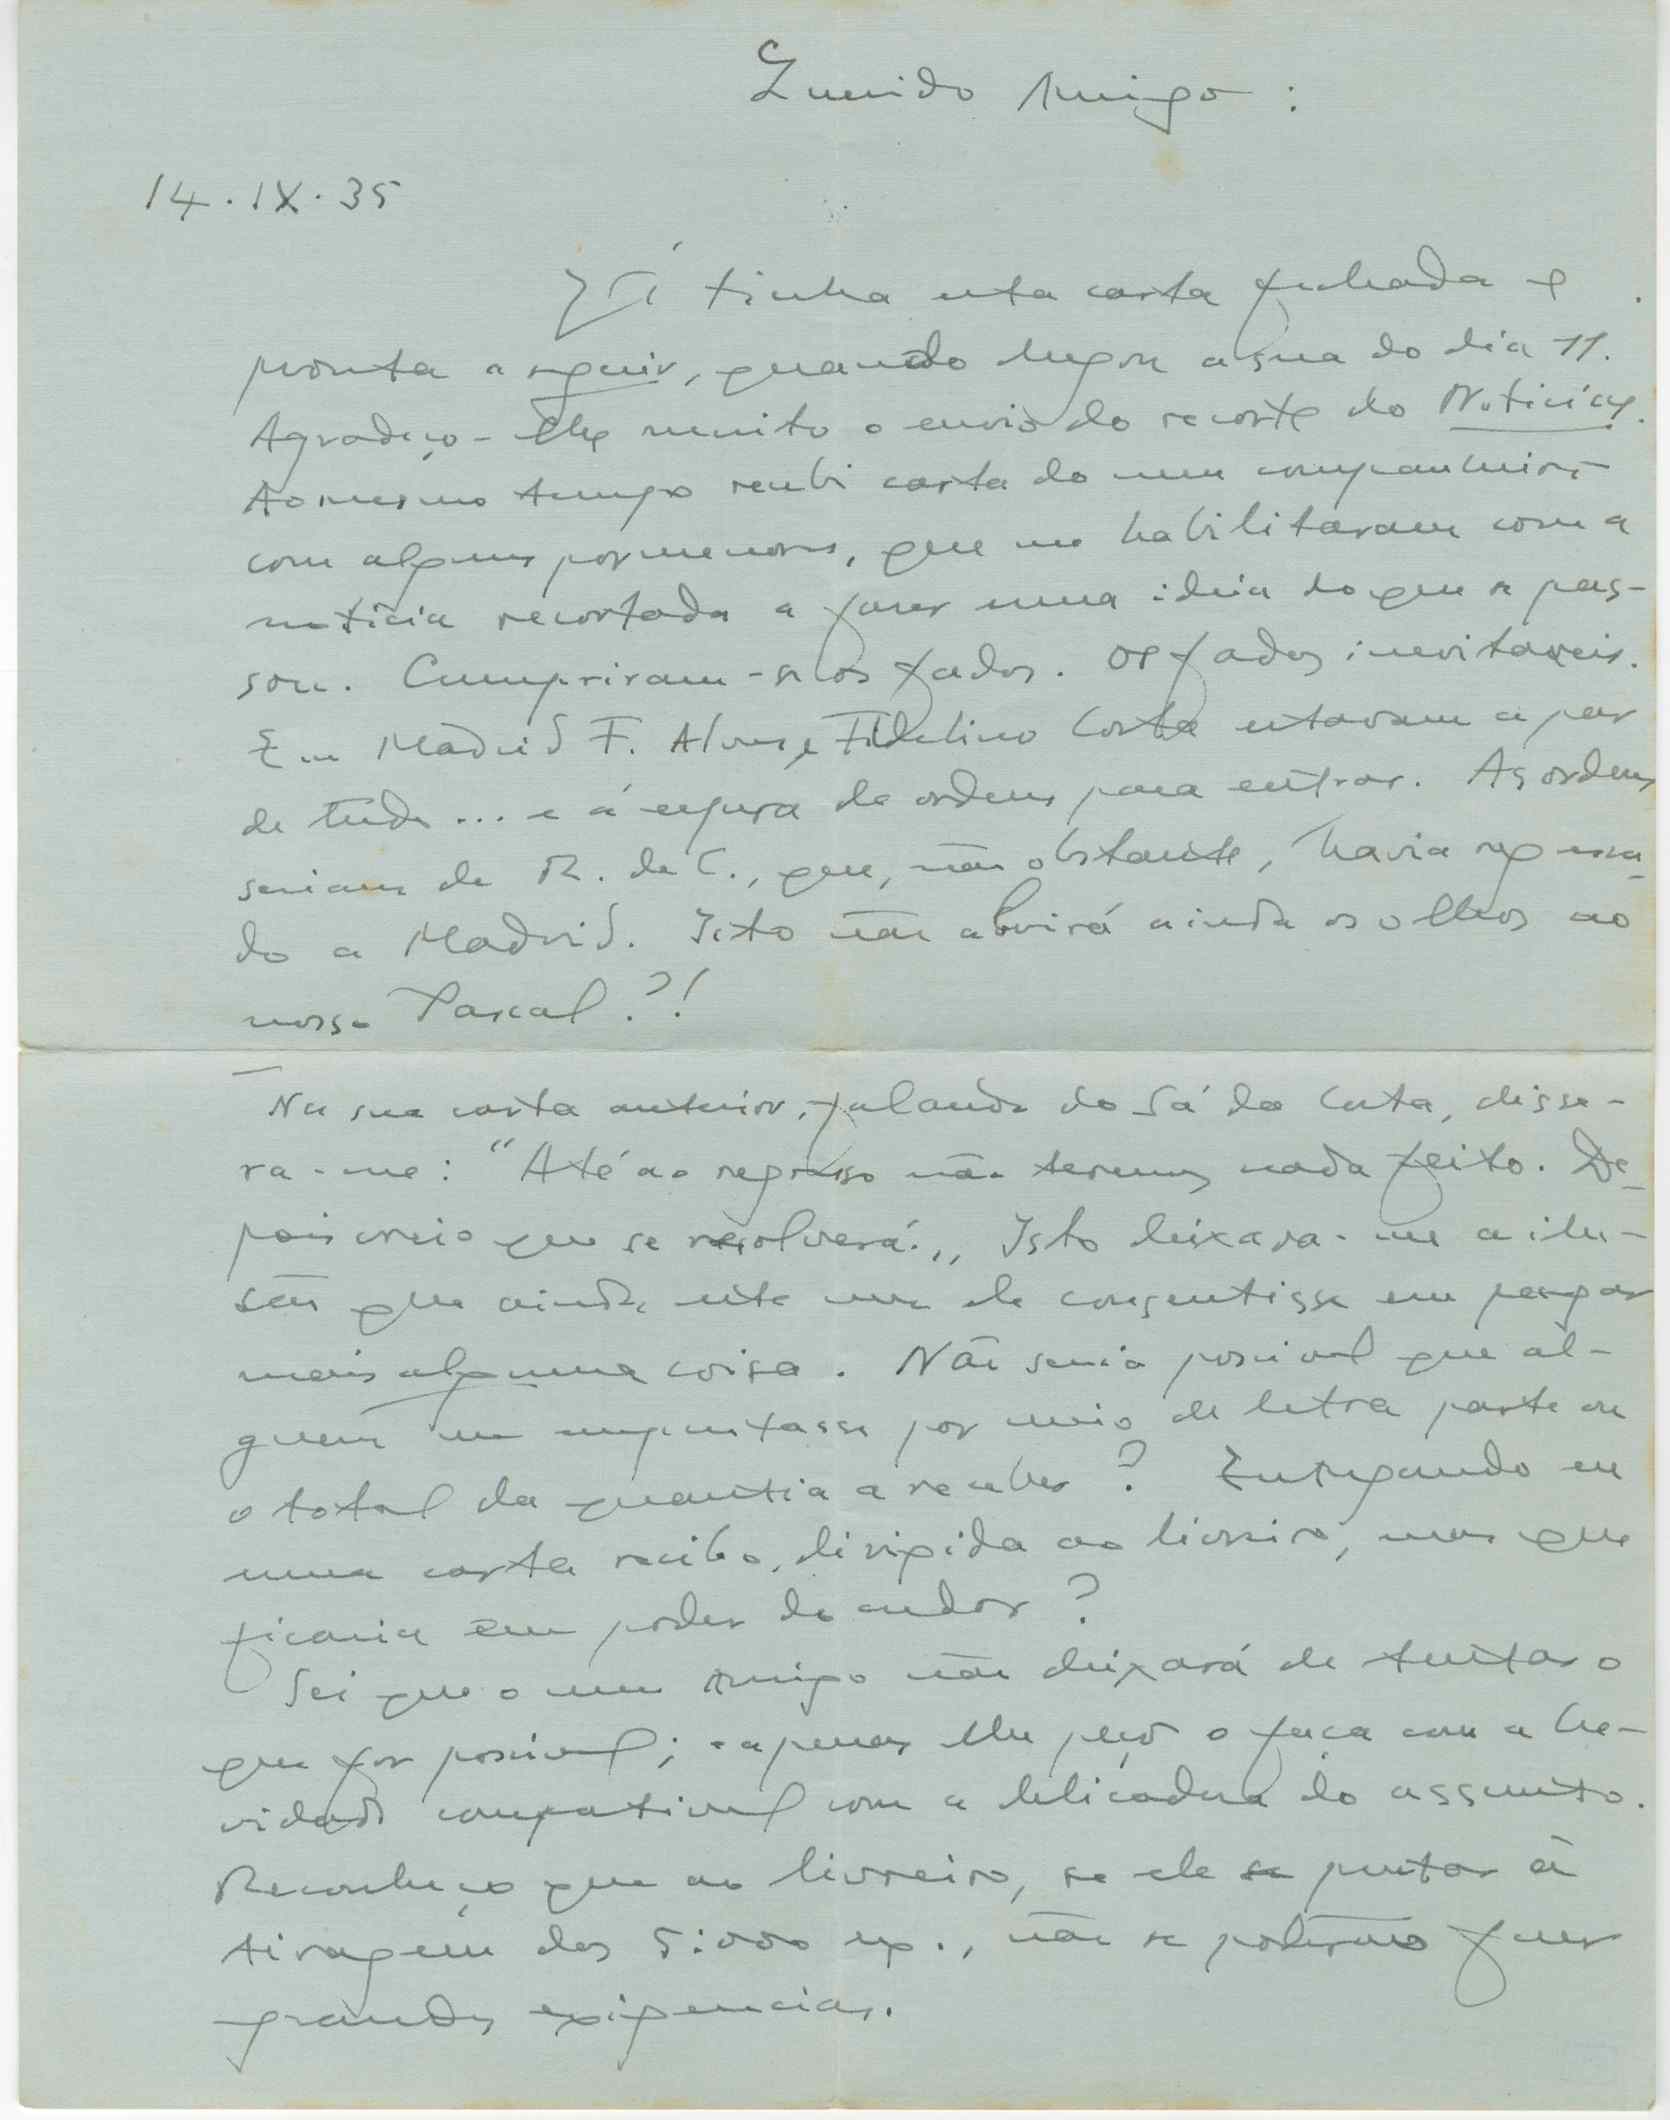 Querido Amigo:
14.IX.35
Já tinha esta carta fechada e
pronta a seguir, quando chegou a sua do dia 11.
Agradeço-lhe muito o envio do recorte do Notícias.
Ao mesmo tempo recebi carta do meu companheiro
com alguns pormenores, que me habilitaram com a
notícia recortada a fazer uma ideia do que se pas-
sou. Cumpriram-se os fados. Os fados inevitaveis.
Em Madrid F. Alves e Fidelino Costa estavam a par
de tudo... e á espera de ordens para entrar. As ordens
seriam de R. de C., que, não obstante, havia regressa-
do a Madrid. Isto não abrirá ainda os olhos ao
nosso Pascal?!
Na sua carta anterior, falando do Sá da Costa, disse-
ra-me: "Até ao regresso não teremos nada feito. De-
pois creio que se resolverá.„ Isto deixara-me a ilu-
são que ainda este mez ele consentisse em pagar
mais alguma coisa. Não seria possivel que al-
guem me emprestasse por meio de letra parte ou
o total da quantia a receber? Entregando eu
uma carta recibo, dirigida ao livreiro, mas que
ficaria em poder do credor?
Sei que o meu Amigo não deixará de tentar o
que for possivel; e apenas lhe peço o faça com a bre-
vidade compativel com a delicadeza do assunto.
Reconheço que ao livreiro, se ele se prestar á
tiragem dos 5:000 ex., não se poderão fazer
grandes exigencias.